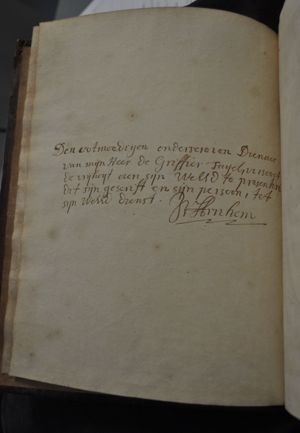 Den ootmoedigen onderscreven Dienaer
van mijn Heer de Griffier
de vrijheyt aen sijn Welsd te presenteren
dit sijn gescrift en sijn persoon, tot
sijn Welsd dienst.
Arnhem